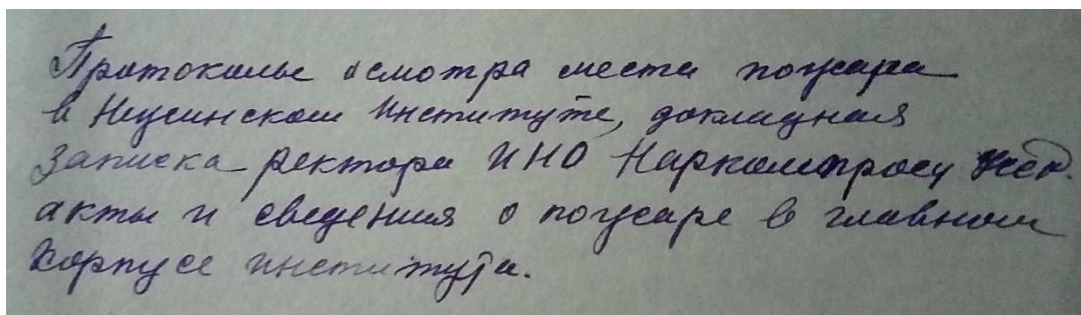 Протоколы осмотра места пожара
в Нежинском институте, докладная
записка ректора ИНО Наркомпросу
акты и сведения о пожаре в главном
корпусе института.